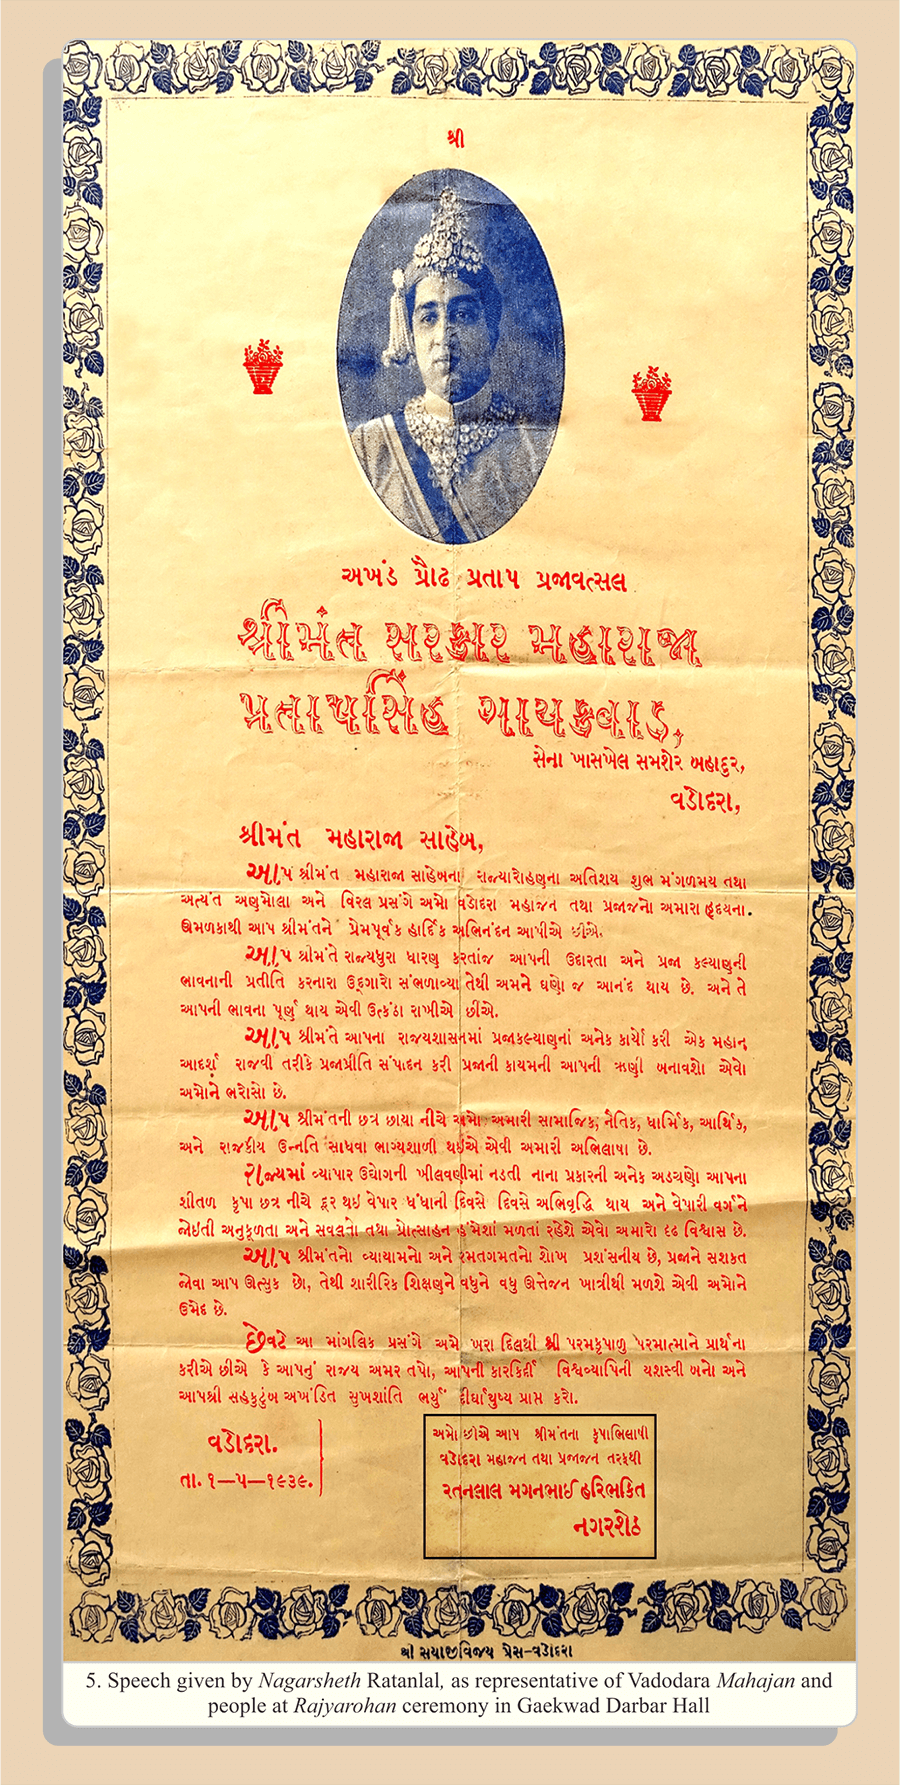 શ્રી
અખંડ પ્રૌઢ પ્રતાપ પ્રજાવત્સલ
શ્રીમંત સરકાર મહારાજા
પ્રતાપસિંહ ગાયકવાડ,
સેના ખાસખેલ સમશેર બહાદુર,
વડોદરા,
શ્રીમંત મહારાજા સાહેબ,
આપ શ્રીમંત મહારાજા સાહેબના રાજ્યારોહણના અતિશય શુભ મંગળમય તથા
અત્યંત અણમોલા અને વિરલ પ્રસંગે અમો વડોદરા મહાજન તથા પ્રજાજનો અમારા હૃદયના
ઊમળકાથી આપ શ્રીમંતને પ્રેમપૂર્વક હાર્દિક અભિનંદન આપીએ છીએ.
આપ શ્રીમંતે રાજ્યધુરા ધારણ કરતાંજ આપની ઉદારતા અને પ્રજા કલ્યાણની
ભાવનાની પ્રતીતિ કરનારા ઉદ્ગારો સંભળાવ્યા તેથી અમને ઘણો જ આનંદ થાય છે. અને તે
આપની ભાવના પૂર્ણ થાય એવી ઉત્કંઠા રાખીએ છીએ.
આપ શ્રીમંતે આપના રાજયશાસનમાં પ્રજાકલ્યાણનાં અનેક કાર્યો કરી એક મહાન
આદર્શ રાજવી તરીકે પ્રજાપ્રીતિ સંપાદન કરી પ્રજાની કાયમની આપની ઋણી બનાવશો એવો
અમોને ભરોસો છે.
આપ શ્રીમંતની છત્ર છાયા નીચે અમો અમારી સામાજિક, નૈતિક, ધાર્મિક, આર્થિક,
અને રાજકીય ઉન્નતિ સાધવા ભાગ્યશાળી થઈએ એવી અમારી અભિલાષા છે.
રાજ્યમાં વ્યાપાર ઉદ્યોગની ખીલવણીમાં નડતી નાના પ્રકારની અનેક અડચણો આપના
શીતળ કૃપા છત્ર નીચે દૂર થઇ વેપાર ધંધાની દિવસે દિવસે અભિવૃદ્ધિ થાય અને વેપારી વર્ગને
જોઇતી અનુકૂળતા અને સવલતો તથા પ્રોત્સાહન હંમેશાં મળતાં રહેશે એવો અમારો દૃઢ વિશ્વાસ છે.
આપ શ્રીમંતનો વ્યાયામનો અને રમતગમતનો શોખ પ્રશંસનીય છે, પ્રજાને સશક્ત
જોવા આપ ઊત્સુક છો, તેથી શારીરિક શિક્ષણને વધુને વધુ ઊત્તેજન ખાત્રીથી મળશે એવી અમોને
ઉમેદ છે.
છેવટે આ માંગલિક પ્રસંગે અમે ખરા દિલથી શ્રી પરમકૃપાળુ પરમાત્માને પ્રાર્થના
કરીએ છીએ કે આપનું રાજય અમર તપો, આપની કારકિર્દી વિશ્વવ્યાપિની યશસ્વી બનો અને
આપશ્રી સહકુટુંબ અખંડિત સુખશાંતિ ભર્યું દીર્ઘાયુષ્ય પ્રાપ્ત કરો.
વડોદરા.
તા. ૧-૫-૧૯૩૯.
અમો છીએ આપ શ્રીમંતના કૃપાભિલાષી
વડોદરા મહાજન તથા પ્રજાજન તરફથી
રતનલાલ મગનભાઈ હરિભક્તિ
નગરશેઠ
શ્રી સયાજીવિજય પ્રેસ-વડોદરા
5. Speech given by Nagarsheth Ratanlal, as representative of Vadodara Mahajan and
people at Rajyarohan ceremony in Gaekwad Darbar Hall